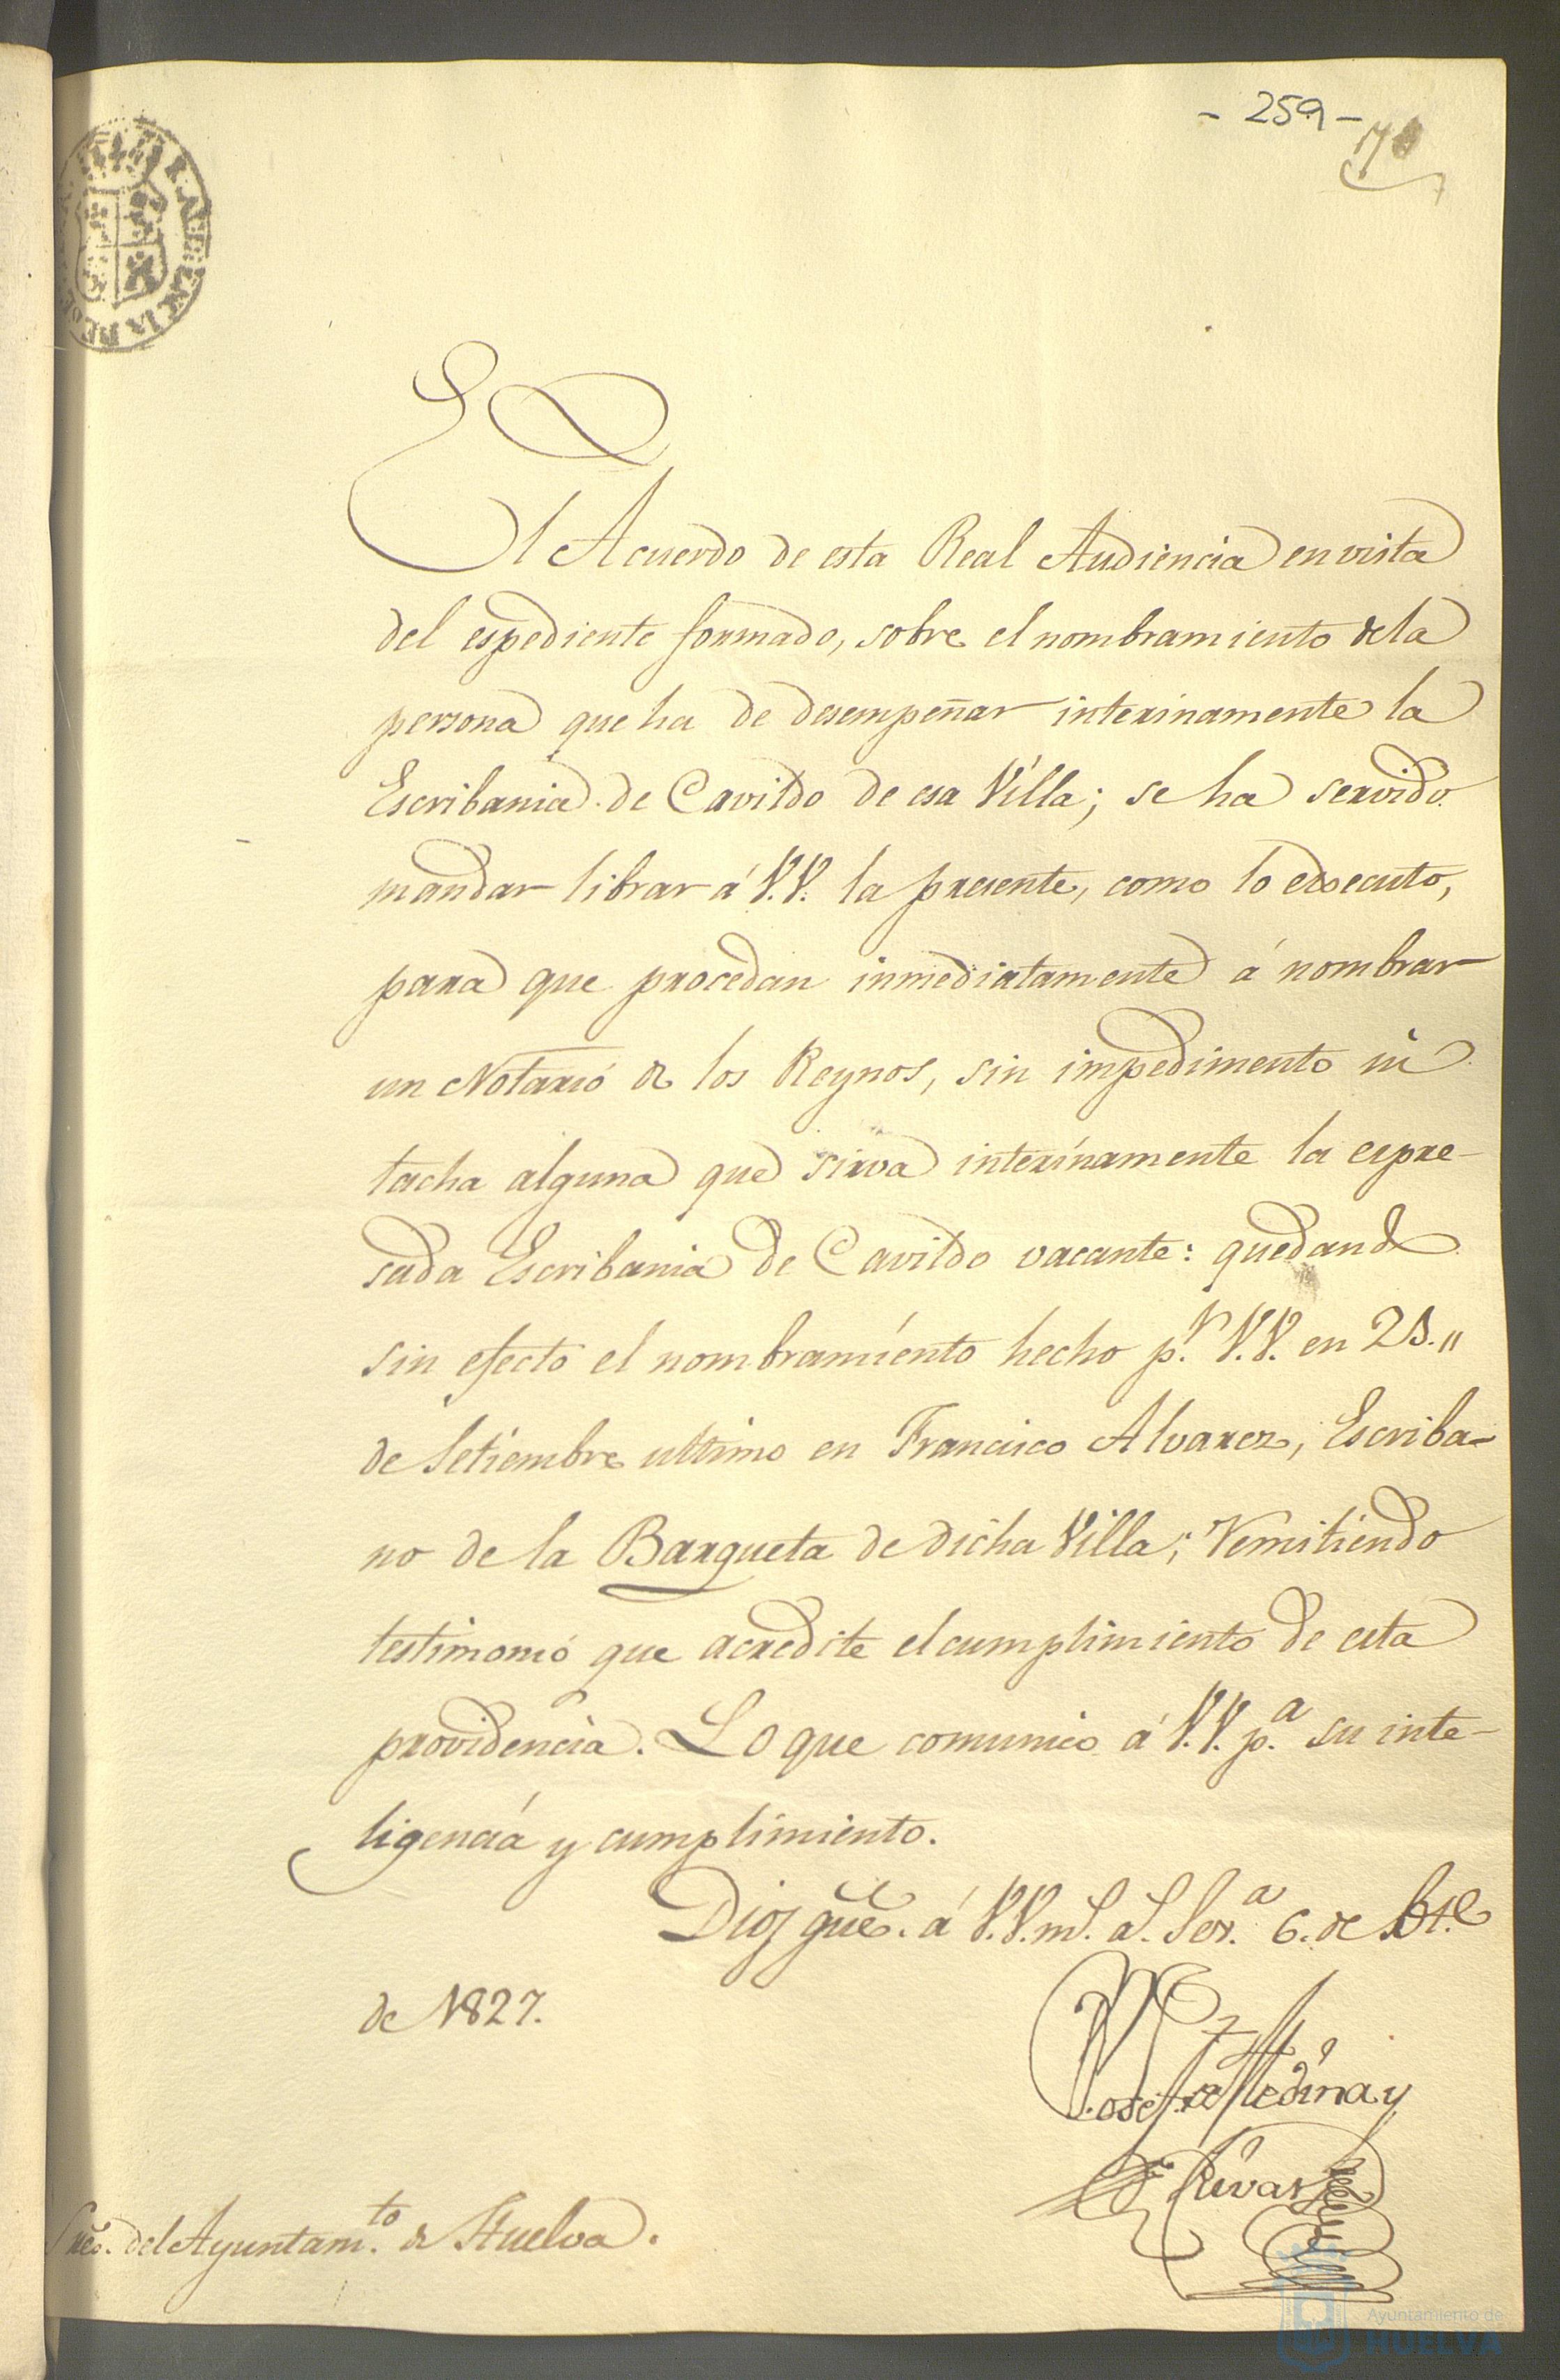 - 259 -
El Acuerdo de esta Real Audiencia en vista
del espediente formado, sobre el nombramiento de la
persona que ha de desempeñar interinamente la
Escribania de Cavildo de esa Villa; se ha servido
mandar librar á V.V. la presente, como lo executo,
para que procedan inmediatamente á nombrar
un Notario de los Reynos, sin impedimento ni
tacha alguna que sirva interinamente la espre-
sada Escribania de Cavildo vacante: quedando
sin efecto el nombramiento hecho p.r V.V. en
de Setiembre ultimo en Francisco Alvarez, Escriba-
no de la Barqueta de dicha Villa; remitiendo
testimonio que acredite el cumplimiento de esta
providencia. Lo que comunico á V.V. p.a su inte-
ligencia y cumplimiento.
Dios gue. á V.V. m.s a.s 6. de
de 1827.
Josef de Medina y
Rivas
Sres. del Ayuntam.to de Huelva.
Ayuntamiento de
HUELVA